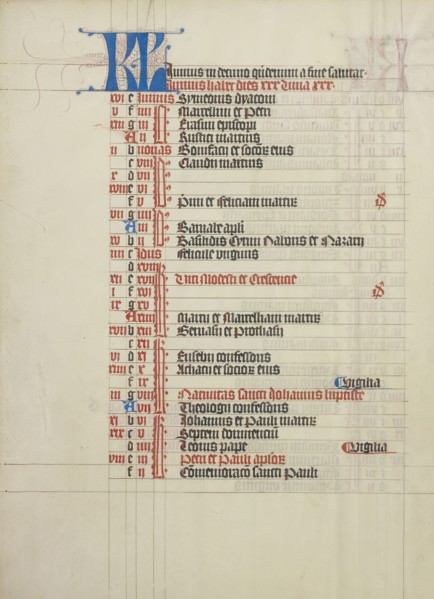 KL Junius in deceno quindenum a fine salutat.
Junius habet dies xxx luna xxx.
e Junius Symeonis dyaconi
v f iiii Marcellini et Petri
xiii g iii Erasmi episcopi
A ii Eustici martiris
ii b nonas Bonifacii et socior eius
c viii Claudii martiris
x d vii
xviii e vi
f v Primi et Feliciani martir
vii g iiii
A iii Barnabe apli
xv b ii Basilidis Cirini Naboris et Nazarii
iiii c Idus Felicule virginis
d xviii
xii e xvii Viti Modesti et Crescencie
i f xvi
ix g xv
A xiiii Marci et Marcelliani martir
xvii b xiii Geruasii et Prothasii
c xii
vi d xi Eusebii confessoris
xiiii e x Achacii et socior eius
f ix Vigilia
iii g viii Natiuitas sancti Johannis baptiste
A vii confessoris
xi b vi Johannis et Pauli martir
xix c v Septem dormiencium
d iiii Leonis pape Vigilia
viii e iii Petri et Pauli aplor
f ii Comemoracio sancti Pauli